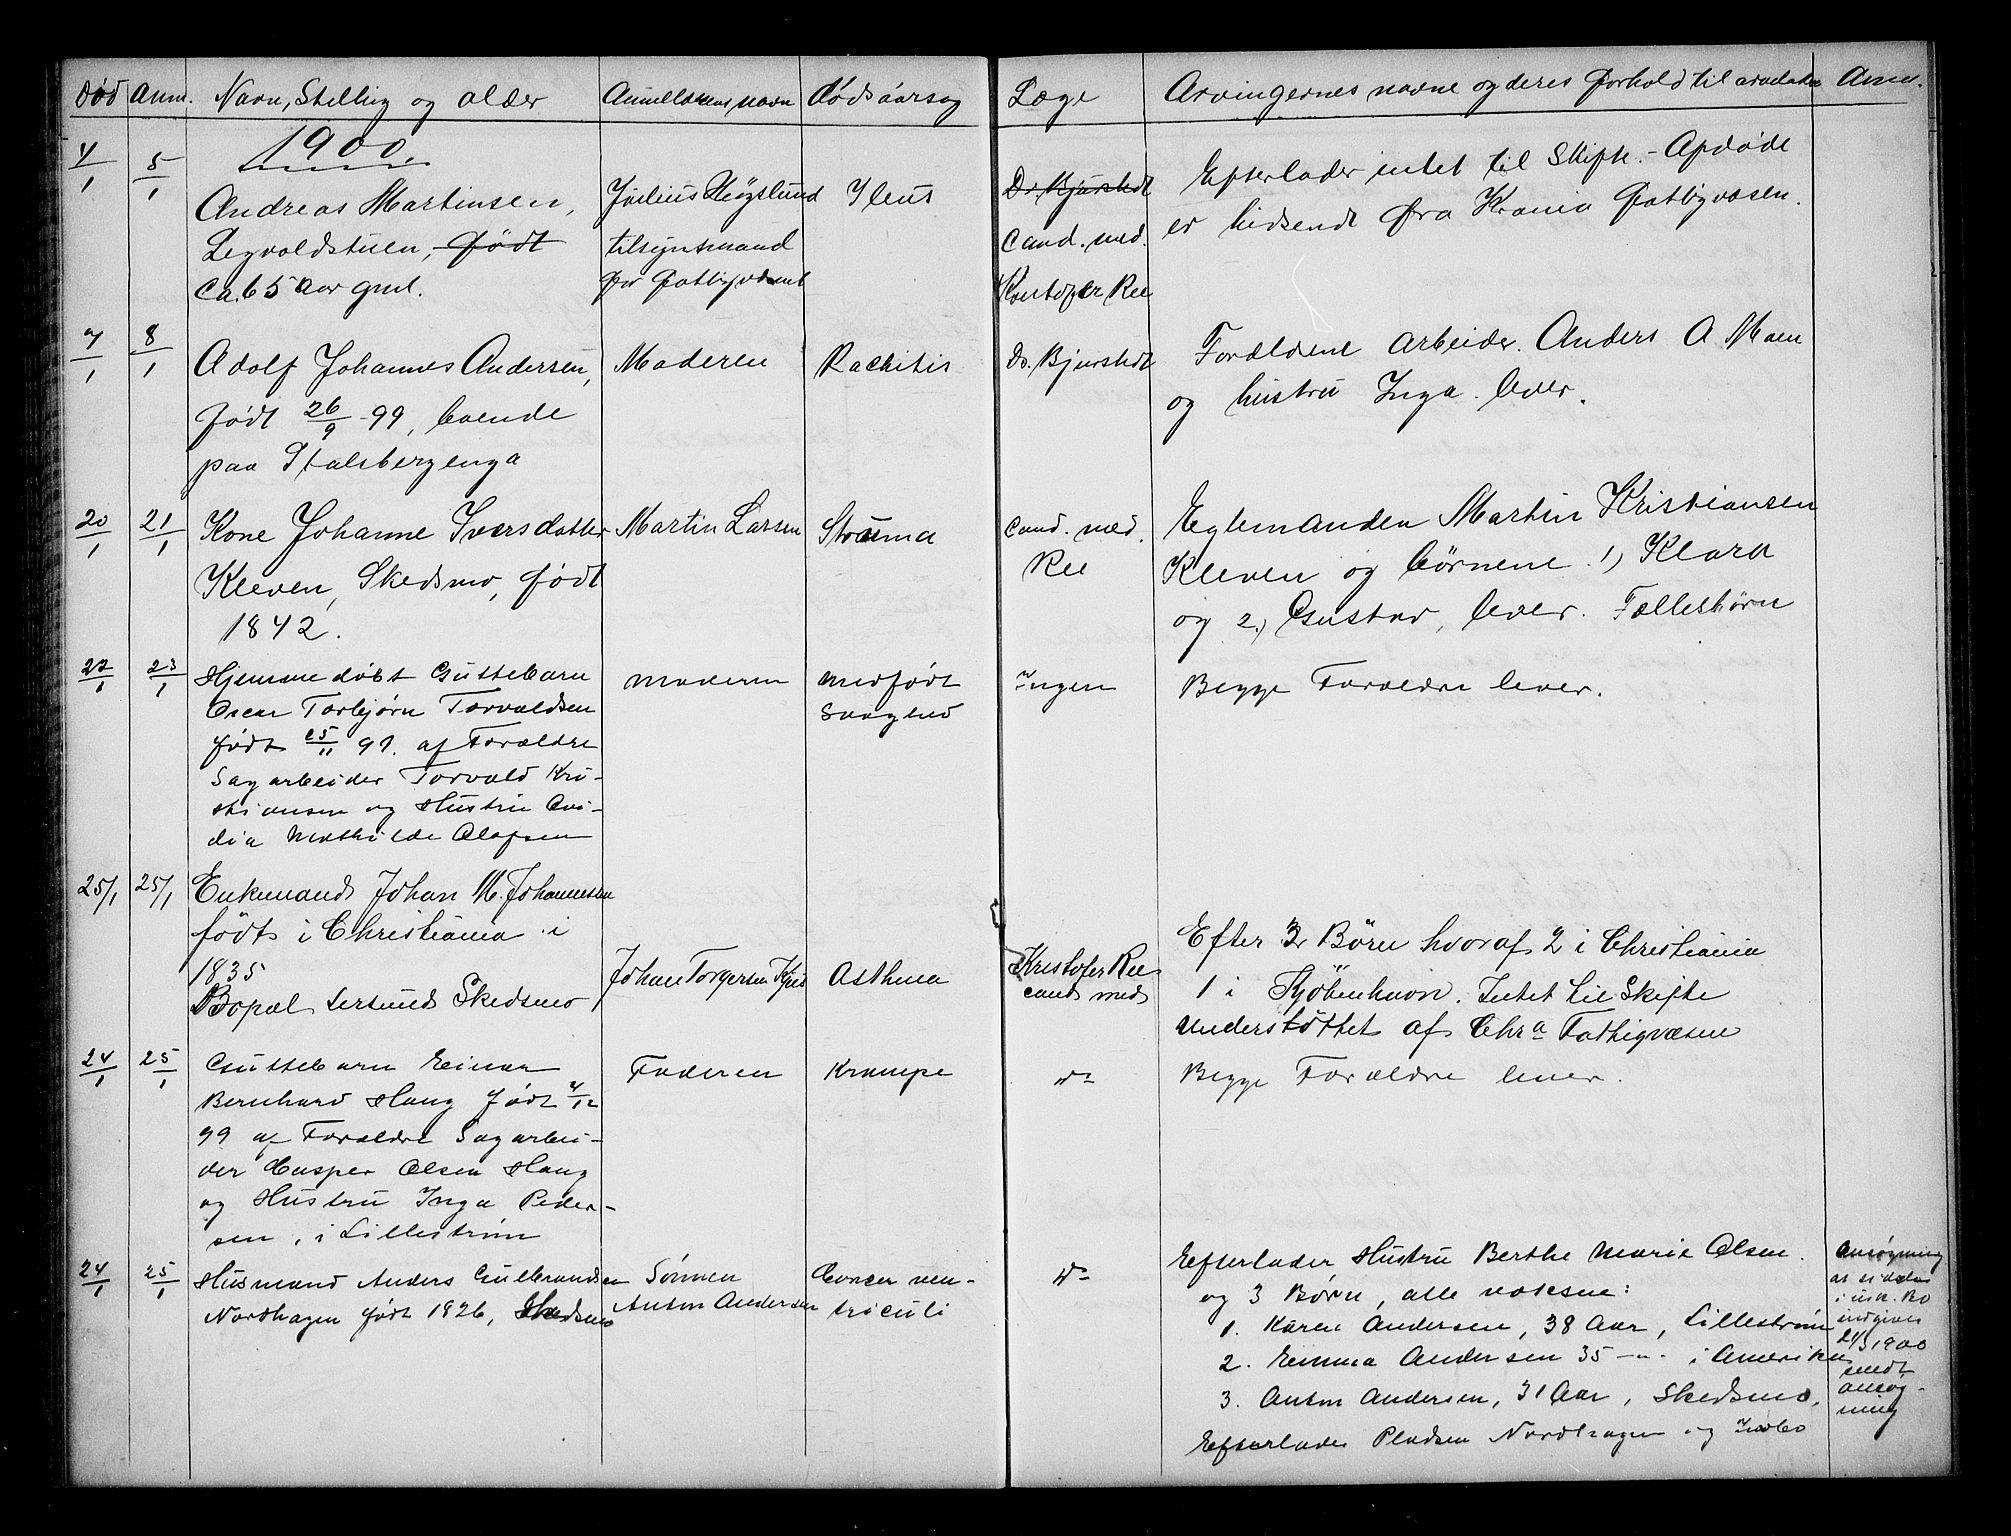 Død Anm. Navn, Stelling og alder Anmelderens navn Dødsaarsag Læge Arvingernes navne og deres Forhold til avdøde Anm.
1900.
4/1 5/1
Andreas Martinsen,
Legvoldstuen, født
Ca. 65 Aar gml.
Julius Høgslund
tilsynsmand
for Fattigvæsenet
Ileus
Dr Bjørstedt
Cand. med.
Kristofer Ree
Efterlader intet til Skifte. - Afdøde
er hidsendt fra Krania Fattigvæsen.
7/1 8/1
Adolf Johannes Andersen,
født 26/9 - 99, boende
paa Stalsbergenga
Moderen
Rachitis
Dr. Bjørstedt
Forældrene Arbeider. Anders A. Moen
og hustru Inga. lever.
20/1 21/1
Kone Johanne Iversdatter
Kleven, Skedsmo, født
1842.
Martin Larsen
Struma
Cand. med.
Ree
Egtemanden Martin Kristiansen
Kleven og børnene 1) Klara
og 2.) Gustav, lever. Fællesbørn
22/1 23/1
Hjemmedøbt Guttebarn
Oscar Torbjørn Torvaldsen
født 25/11 99. af Forældre
Sagarbeider Torvald Kri-
stiansen og Hustru Ovi-
dia Mathilde Olafsen
Moderen
Medfødt
Svaghed
Ingen
Begge Forældre lever.
25/1 25/1
Enkemand Johan M. Johannesen
født i Christiania i
1835
Bopæl Lersund Skedsmo
Johan Torgersen Kjus
Asthma
Kristofer Ree
cand med
Efter 3 Børn hvoraf 2 i Christiania
1 i Kjöbenhavn. Intet til Skifte
Understöttet af Chra Fathigvæsen
24/1 25/1
Guttebarn Einar
Bernhard Haug født 4/12
99 af Forældre Sagarbei-
der Casper Olsen Haug
og Hustru Inga Peder-
sen, i Lillestrøm
Faderen
Krampe
do
Begge Forældre lever.
24/1 25/1
Husmand Anders Gulbrandsen
Nordhagen født 1826, Skedsmo
Sønnen
Anton Andersen
Cancer ven-
triculi
do
Efterlader Hustru Berthe Marie Olsen.
og 3 Børn, alle voksne:
1. Karen Andersen, 38 Aar, Lillestrøm
2. Emma Andersen 35 -"- i Amerika
3. Anton Andersen, 31 Aar, Skedsmo,
Efterlader Pladsen Nordhagen og Indbo
Ansøgning
at sidde
i usk. Bo
indgives
24/3 1900
sendt
ansøg-
ning